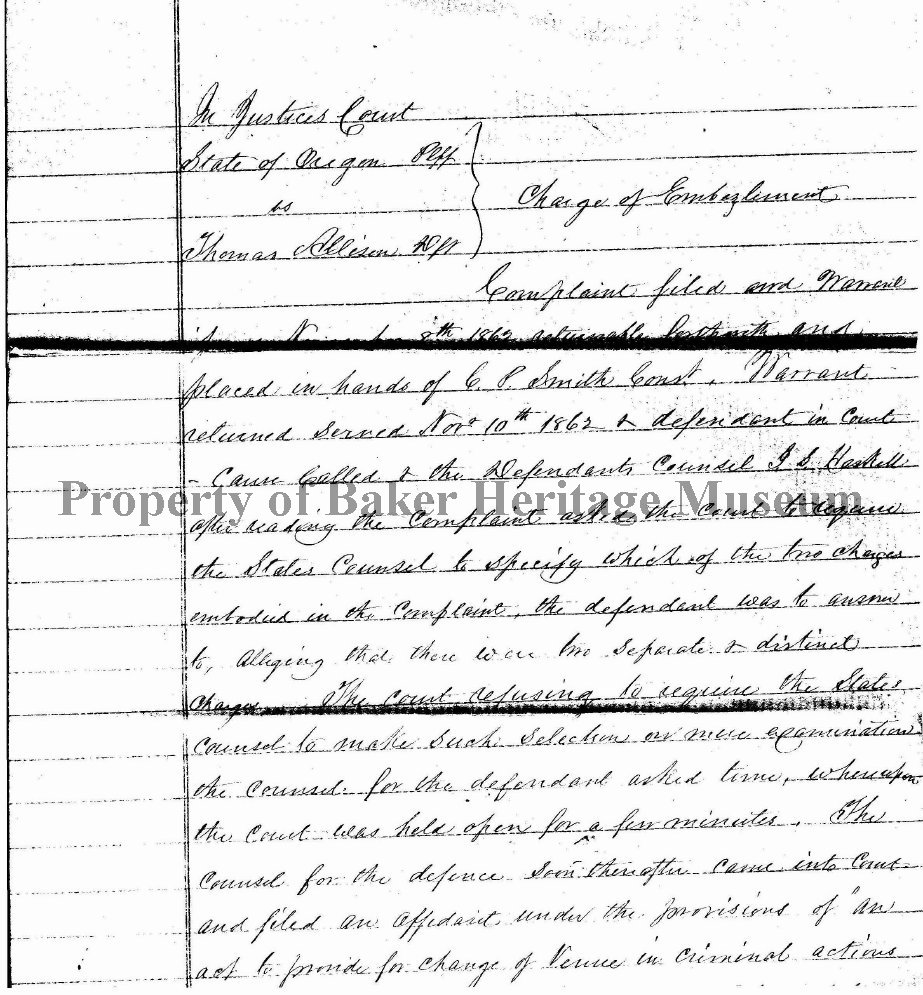 In Justices Court
State of Oregon Plff
vs
Charge of Embezlement
Thomas Allison Dft
Complaint filed and Warrant
8th 1862 returnable forthwith and
placed in hands of C. P. Smith Const. Warrant
returned served Nov 10th 1862 & defendant in Court
- Cause Called & the Defendants Counsel I S Haskell
Property of Baker Heritage Museum
after reading the Complaint asked the court to require
the States Counsel to specify which of the two charges
embodied in the Complaint, the defendant was to answer
to, alleging that there were two separate & distinct
charges. The court refusing to require the States
Counsel to make such selection on mere examination
the Counsel for the defendant asked time, whereupon
the Court was held open for a few minutes. The
Counsel for the defence soon thereafter came into Court
and filed an affidavit under the provisions of "an
act to provide for change of Venue in criminal actions